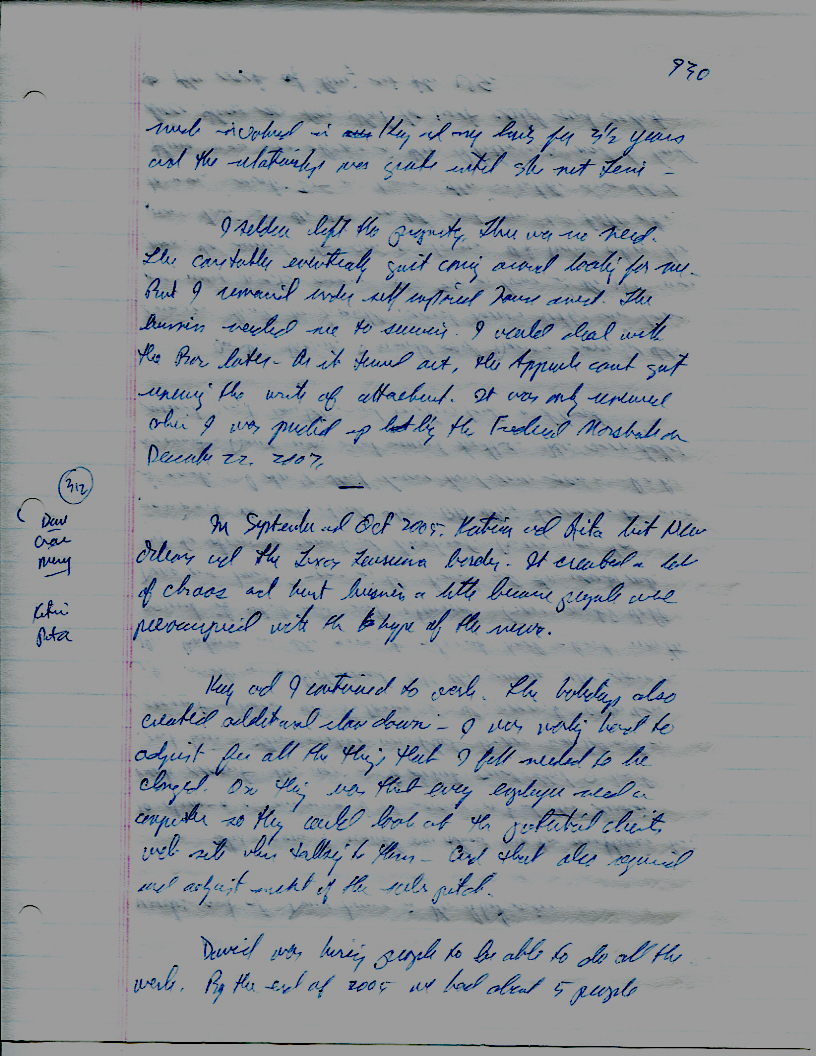 930
involved in Kay and my lives for 2 1/2 years
and the relationship was great until she met Terri -
I seldom left the property. There was no need.
The constable eventually quit coming around looking for me.
But I remained under self imposed house arrest. The
business needed me to survive. I would deal with
the Bar later - As it turned out, the Appeals court quit
renewing the writ of attachment. It was only renewed
when I was picked up by the Federal Marshals on
December 22, 2007.
312
Dave
Craze
Merry
Katrina
Rita
In September and Oct 2005, Katrina and Rita hit New
Orleans and the Texas Louisiana border. It created a lot
of chaos and hurt business a little because people were
preoccupied with the hype of the news.
Kay and I continued to work. The holidays also
created additional slow down - I was working hard to
adjust for all the things that I felt needed to be
changed. One thing was that every employee need a
computer so they could look at the potential clients
web site when talking to them - and that also required
adjustment of the sales pitch.
David was hiring people to be able to do all the
work. By the end of 2005 we had about 5 people